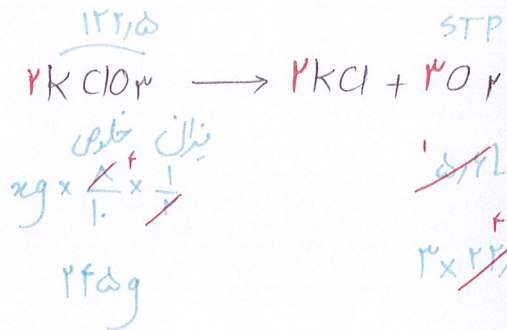 ۱۲۲٫۵ STP
۲KClO۳ → ۲KCl + ۳O۲
خلوص
xg × ۸/۱۰ ۴ × ۱/۲ ۱ ۵٫۶L
۲۴۵g ۳ × ۲۲٫ ۴